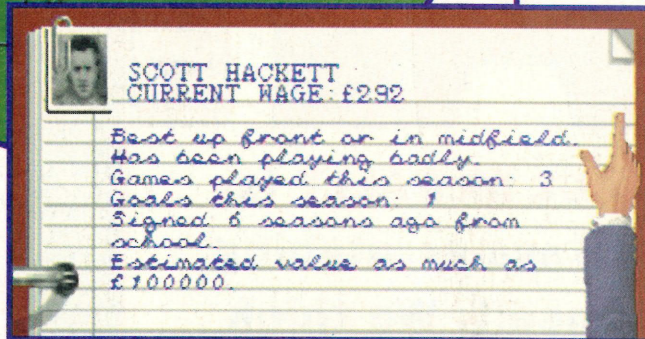 SCOTT HACKETT
CURRENT WAGE:£292
Best up front or in midfield.
Has been playing badly.
Games played this season: 3
Goals this season: 1
Signed 6 seasons ago from
school.
Estimated value as much as
£100000.